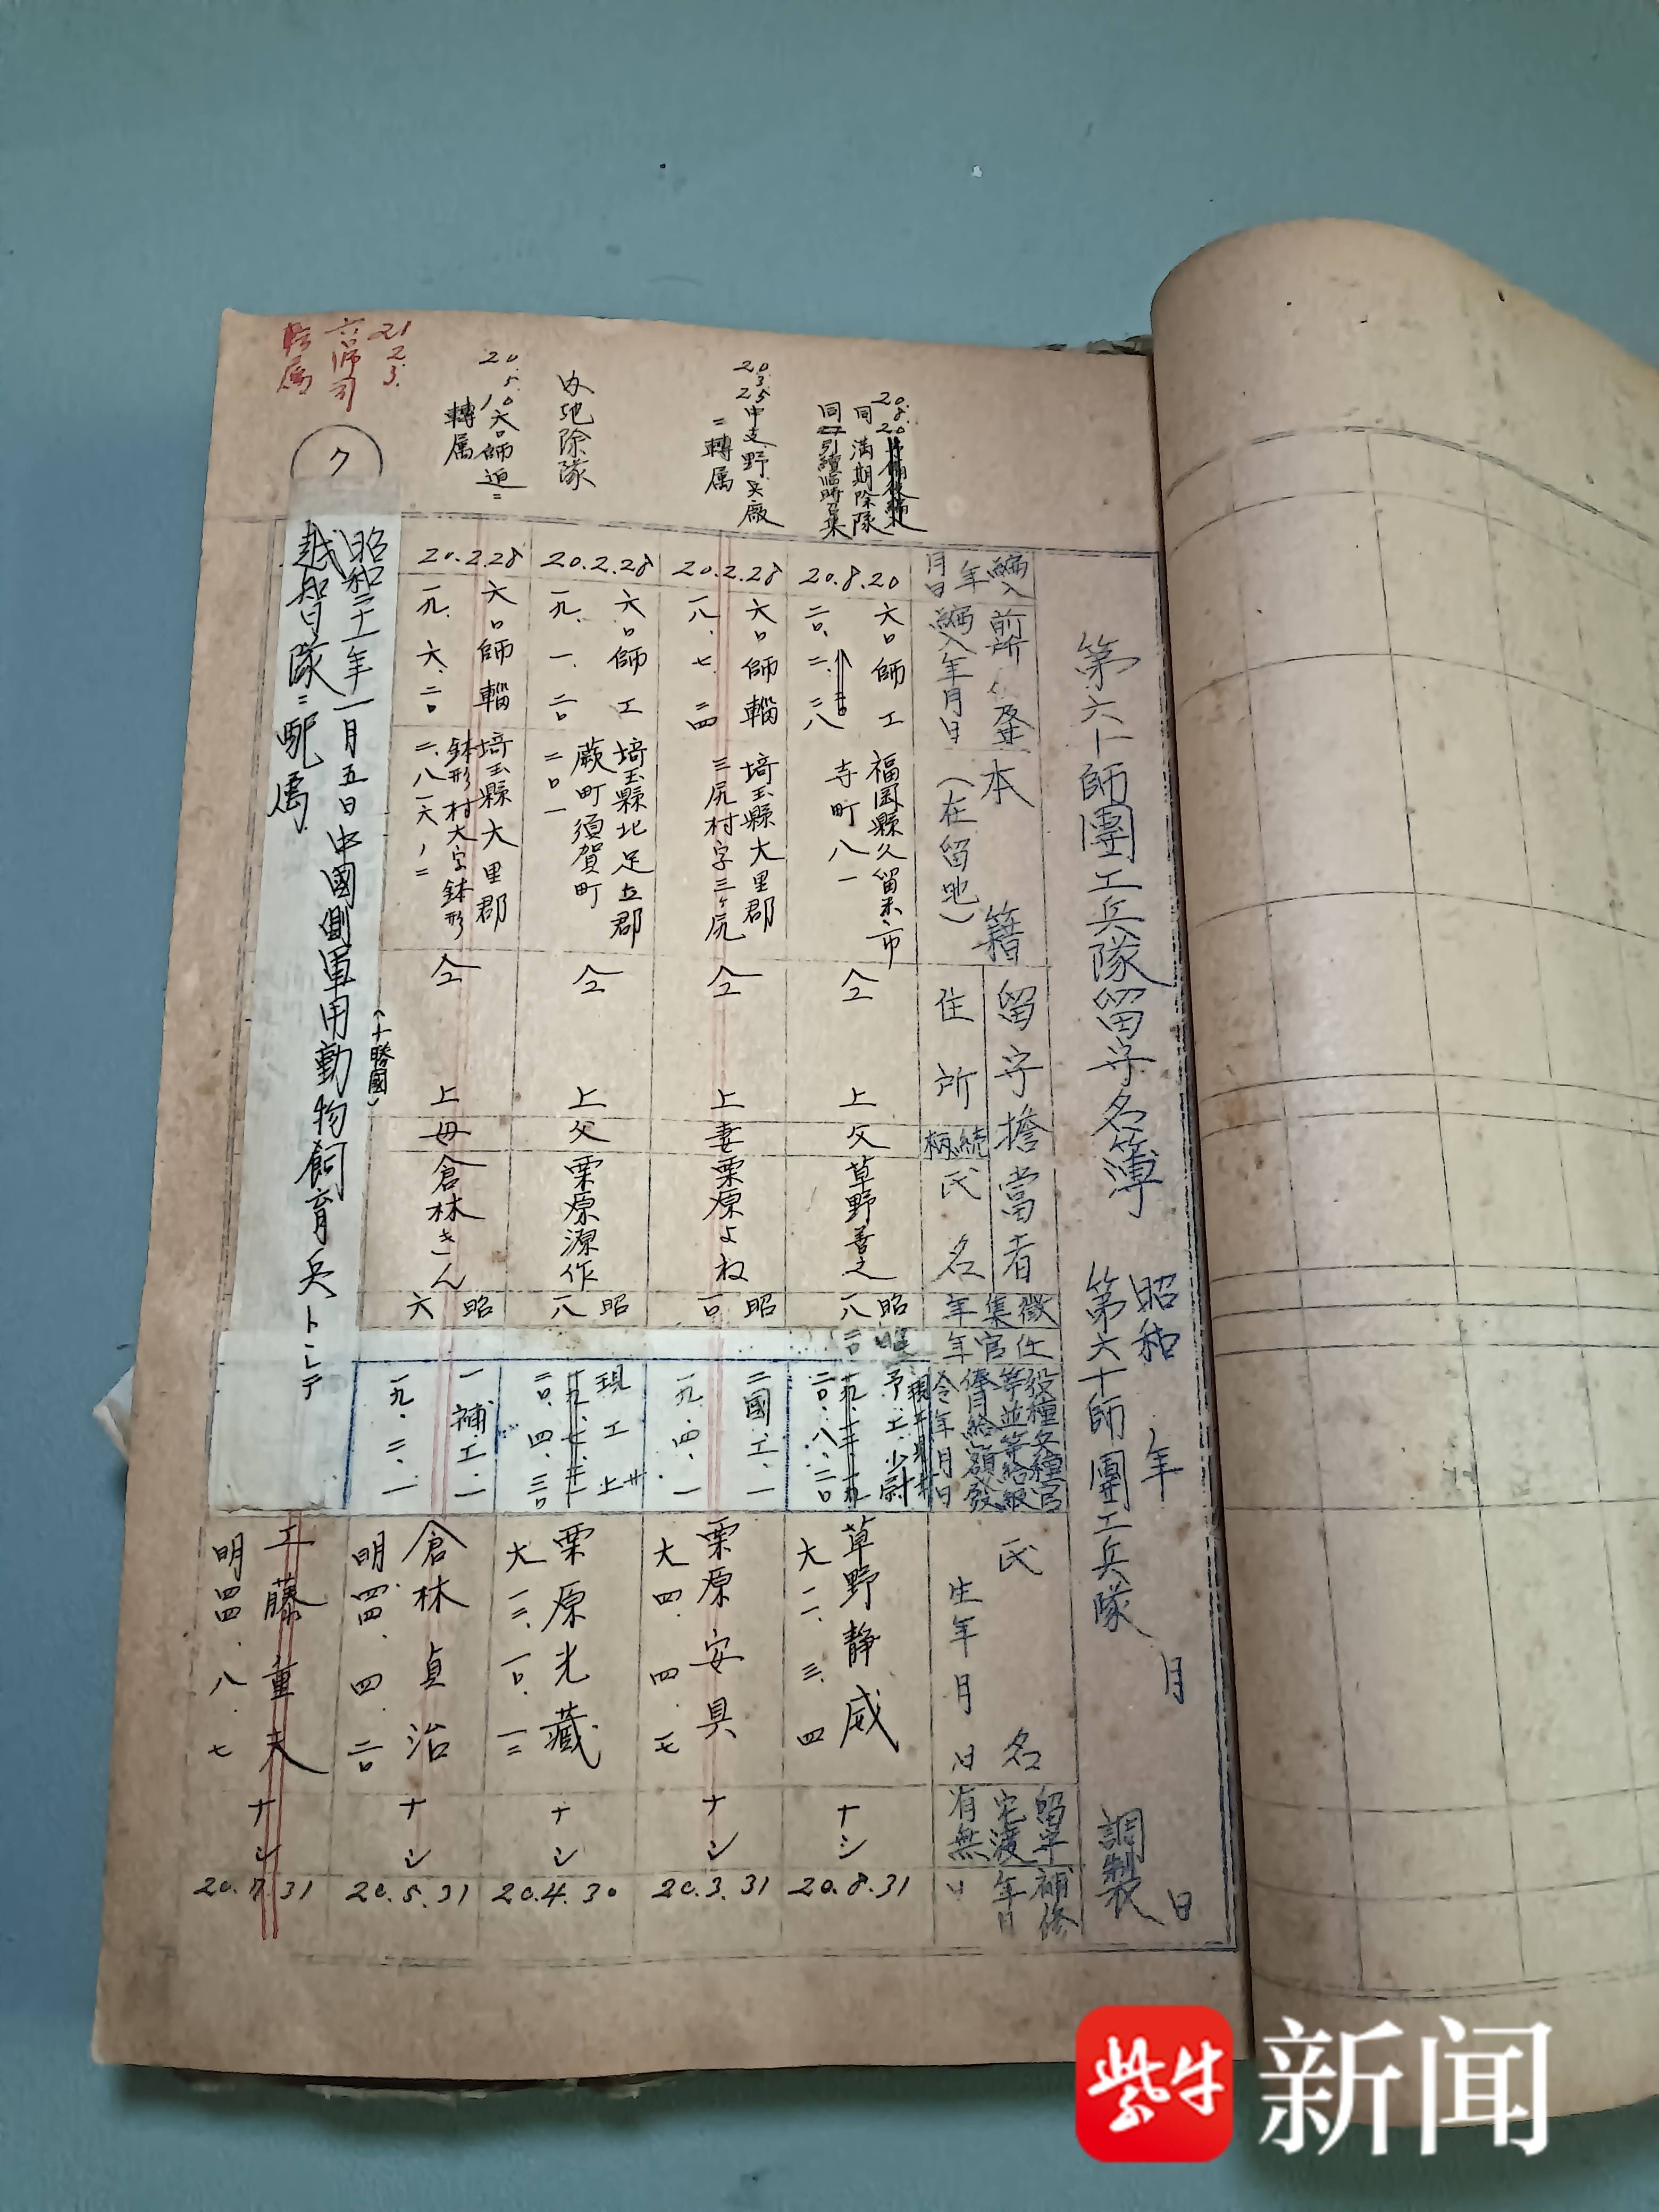 第六十師團工兵隊留守名簿
昭和 年 月 日調製
第六十師團工兵隊
編入年月日
前所属及其編入年月日
本籍
(在留地)
留守擔當者
住所
続柄
氏名
徴集年
任官年
氏名
生年月日
留守宅渡有無
補修年月日
20.8.20
同 満期除隊
同 引續臨時召集
20.8.20
六〇師工
二〇、二、二八
福岡縣久留米市
寺町八一
仝上
父
草野善之
昭一八
予工少尉
二〇、八、二〇
草野静威
大一一、三、四
ナシ
20.8.31
20.3.25
中支野兵廠
ニ轉属
20.2.28
六〇師輜
一八、七、二四
埼玉縣大里郡
三尻村字三ヶ尻
仝上
妻
栗原よね
昭一〇
二國、工、一
一九、四、一
栗原安具
大四、四、一七
ナシ
20.3.31
内地除隊
20.2.28
六〇師工
一九、一、二〇
埼玉縣北足立郡
蕨町須賀町
二〇一
仝上
父
栗原源作
昭一八
現工上
二〇、四、三〇
栗原光藏
大一三、一〇、一三
ナシ
20.4.30
20.5.10
六〇師迫ニ
轉属
20.2.28
六〇師輜
一九、六、二〇
埼玉縣大里郡
鉢形村大字鉢形
二、八一六ノ二
仝上
母
倉林きん
昭六
一補、工、一
一九、二、一
倉林貞治
明四四、四、二〇
ナシ
20.5.31
21.2.3.
六〇師司
転属
ク
昭和二十一年一月五日中國側軍用動物飼育兵トシテ
(十勝國)
越智隊ニ配属
工藤重夫
明四四、八、七
ナシ
20.7.31
紫牛新闻